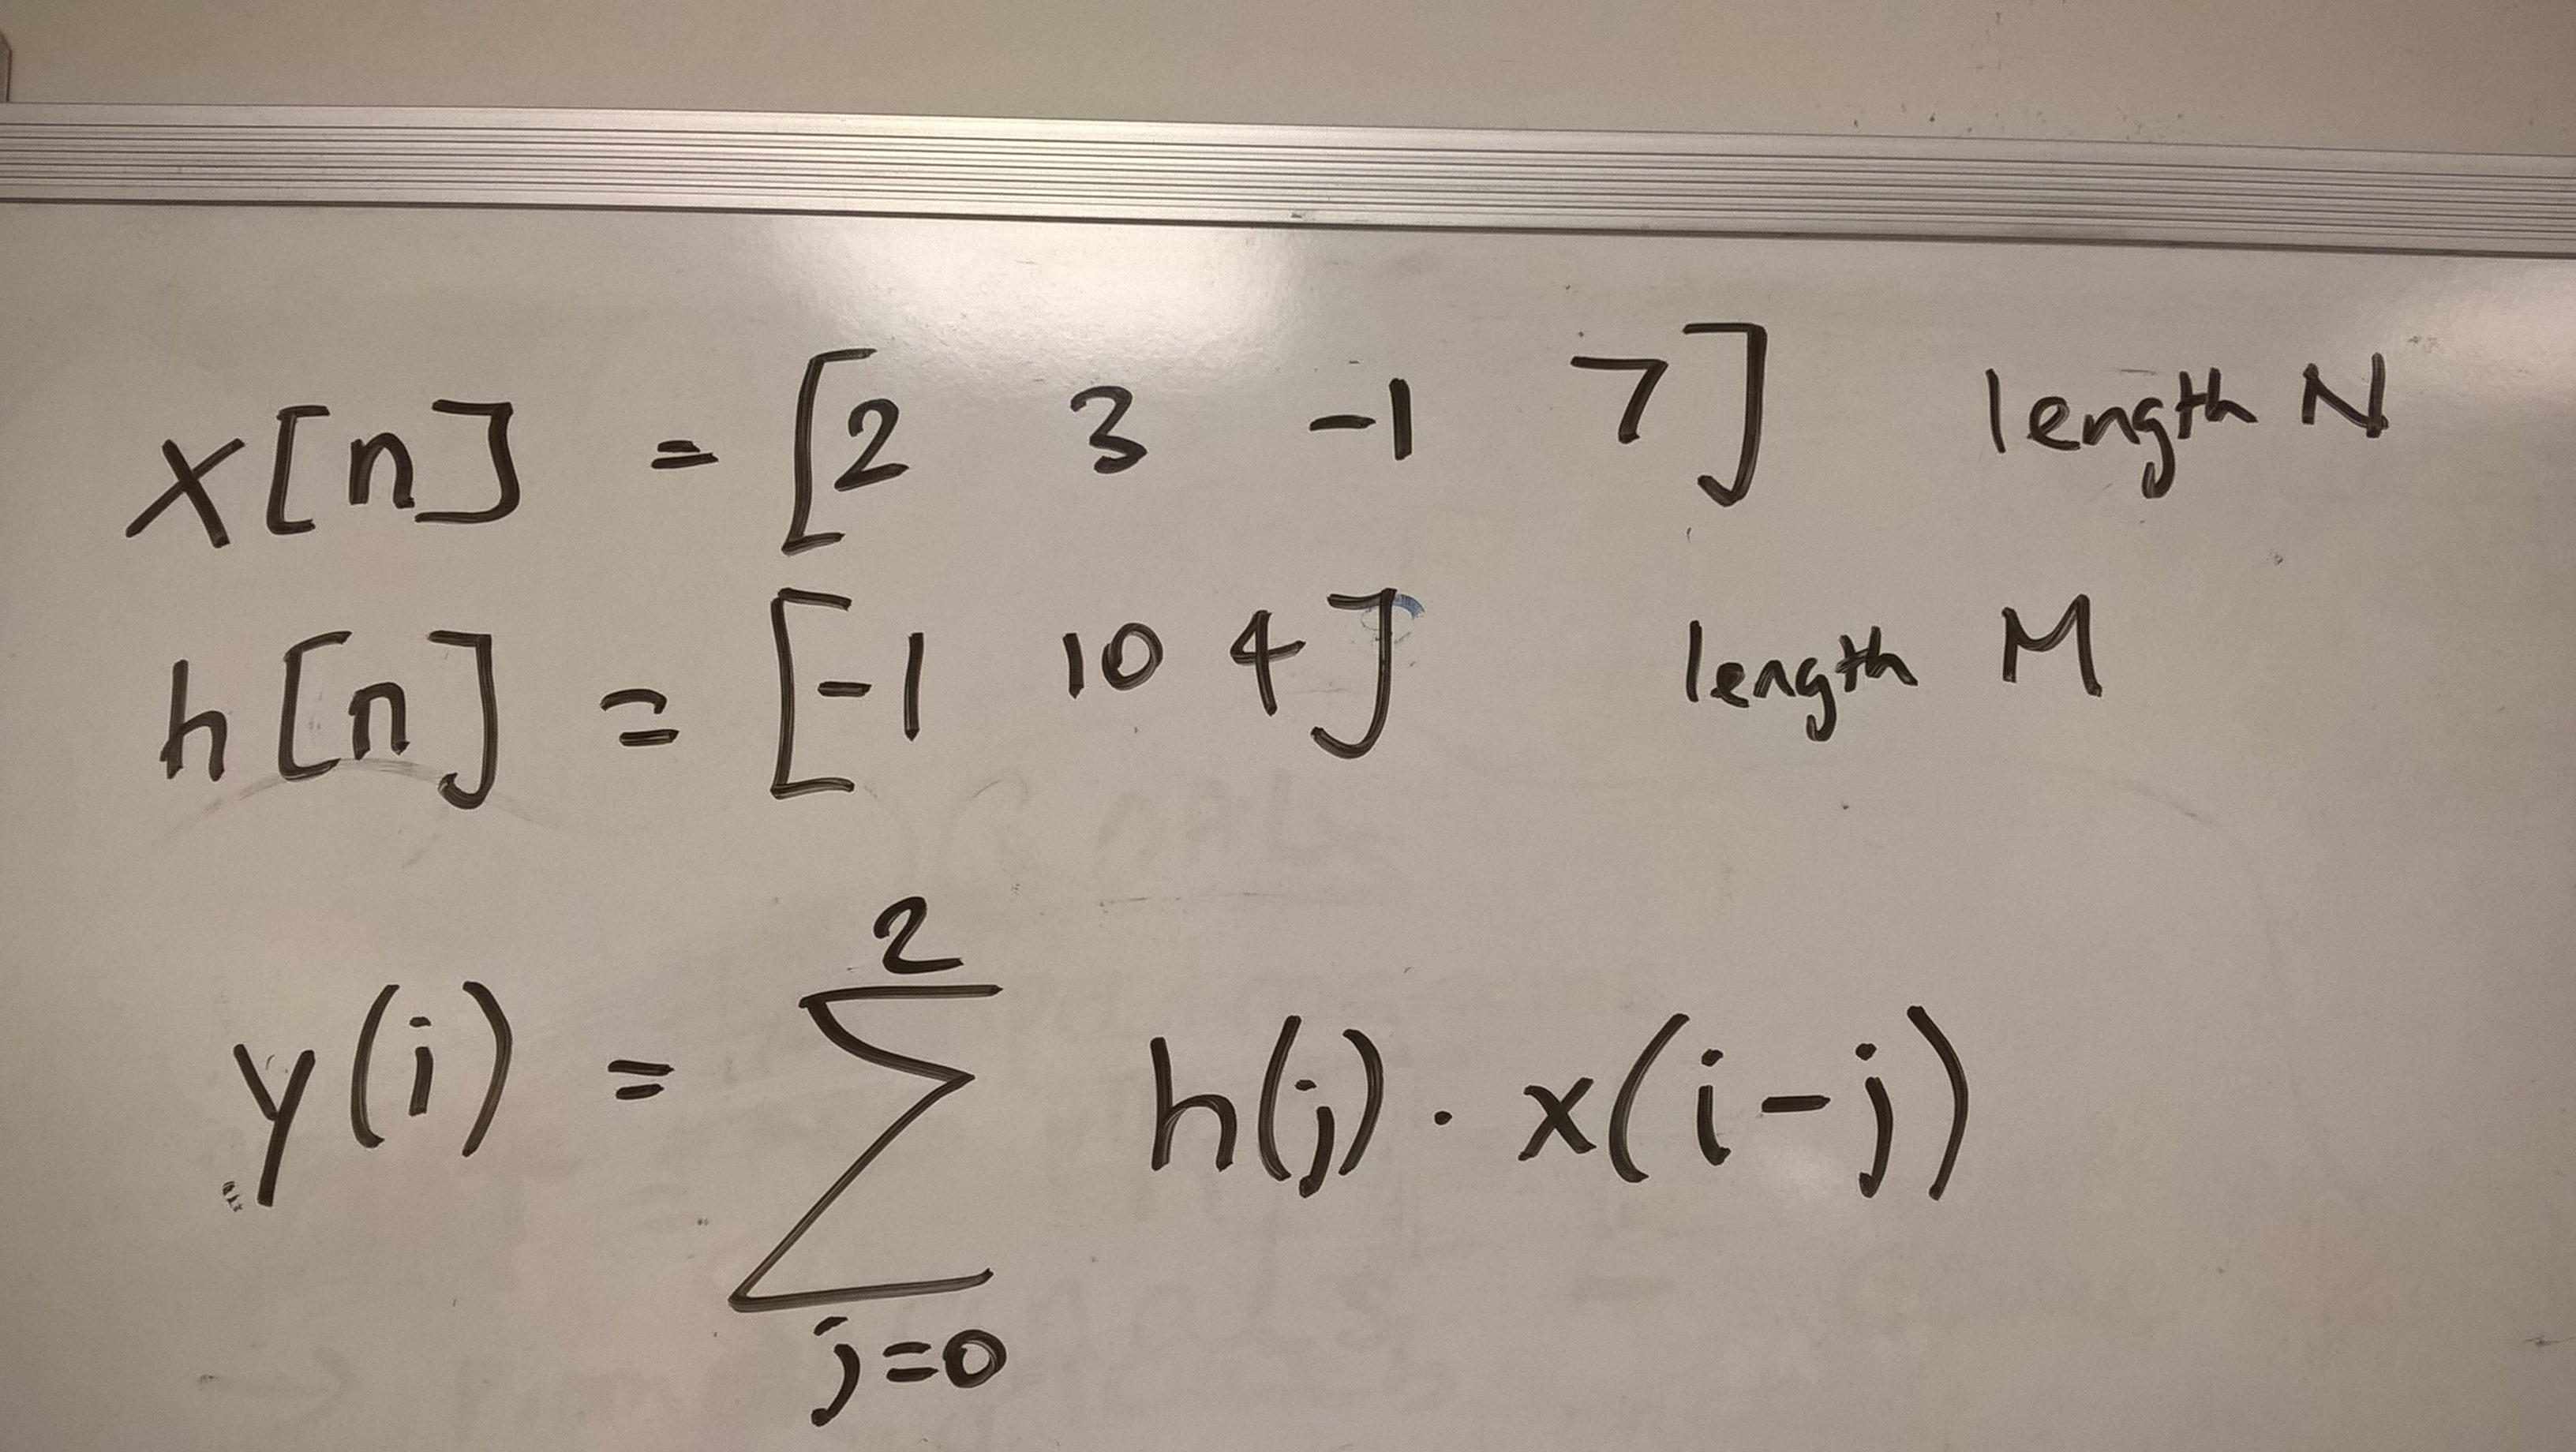 x[n] = [2 3 -1 7] length N
h[n] = [-1 10 4] length M
2
y(i) = Σ h(j) · x(i-j)
j=0